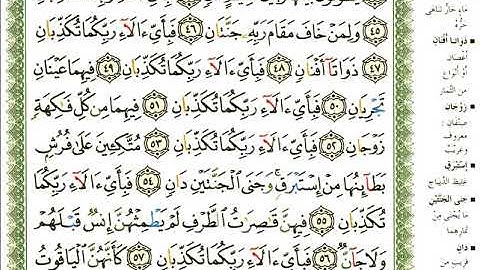 ﴿٤٥﴾ وَلِمَنْ خَافَ مَقَامَ رَبِّهِ جَنَّتَانِ ﴿٤٦﴾ فَبِأَيِّ ءَالَآءِ رَبِّكُمَا تُكَذِّبَانِ
﴿٤٧﴾ ذَوَاتَآ أَفْنَانٍ ﴿٤٨﴾ فَبِأَيِّ ءَالَآءِ رَبِّكُمَا تُكَذِّبَانِ ﴿٤٩﴾ فِيهِمَا عَيْنَانِ
تَجْرِيَانِ ﴿٥٠﴾ فَبِأَيِّ ءَالَآءِ رَبِّكُمَا تُكَذِّبَانِ ﴿٥١﴾ فِيهِمَا مِن كُلِّ فَٰكِهَةٍ
زَوْجَانِ ﴿٥٢﴾ فَبِأَيِّ ءَالَآءِ رَبِّكُمَا تُكَذِّبَانِ ﴿٥٣﴾ مُتَّكِـِٔينَ عَلَىٰ فُرُشٍۭ
بَطَآئِنُهَا مِنْ إِسْتَبْرَقٍ ۚ وَجَنَى ٱلْجَنَّتَيْنِ دَانٍ ﴿٥٤﴾ فَبِأَيِّ ءَالَآءِ رَبِّكُمَا
تُكَذِّبَانِ ﴿٥٥﴾ فِيهِنَّ قَٰصِرَٰتُ ٱلطَّرْفِ لَمْ يَطْمِثْهُنَّ إِنسٌ قَبْلَهُمْ
وَلَا جَآنٌّ ﴿٥٦﴾ فَبِأَيِّ ءَالَآءِ رَبِّكُمَا تُكَذِّبَانِ ﴿٥٧﴾ كَأَنَّهُنَّ ٱلْيَاقُوتُ
ماء حار تناهى
حره
ذواتا أفنان
أغصان
أو أنواع
من الثمار
زوجان
صنفان:
معروف
وغريب
إستبرق
غليظ الديباج
جنى الجنتين
ما يُجنى من
ثمارهما
دان
قريب من